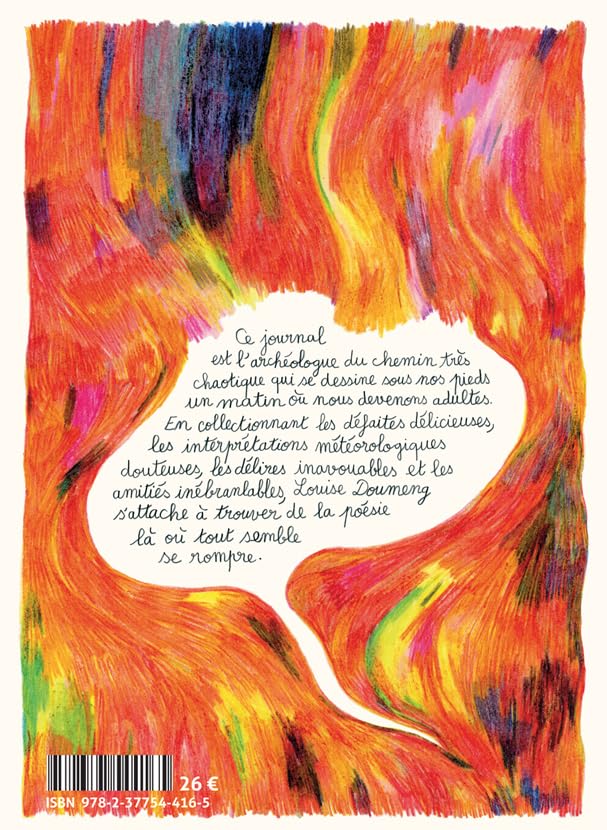 Ce journal
est l'archéologue du chemin très
chaotique qui se dessine sous nos pieds
un matin où nous devenons adultes.
En collectionnant les défaites délicieuses,
les interprétations météorologiques
douteuses, les délires inavouables et les
amitiés inébranlables, Louise Doumeng
s'attache à trouver de la poésie
là où tout semble
se rompre.
26 €
ISBN 978-2-37754-416-5